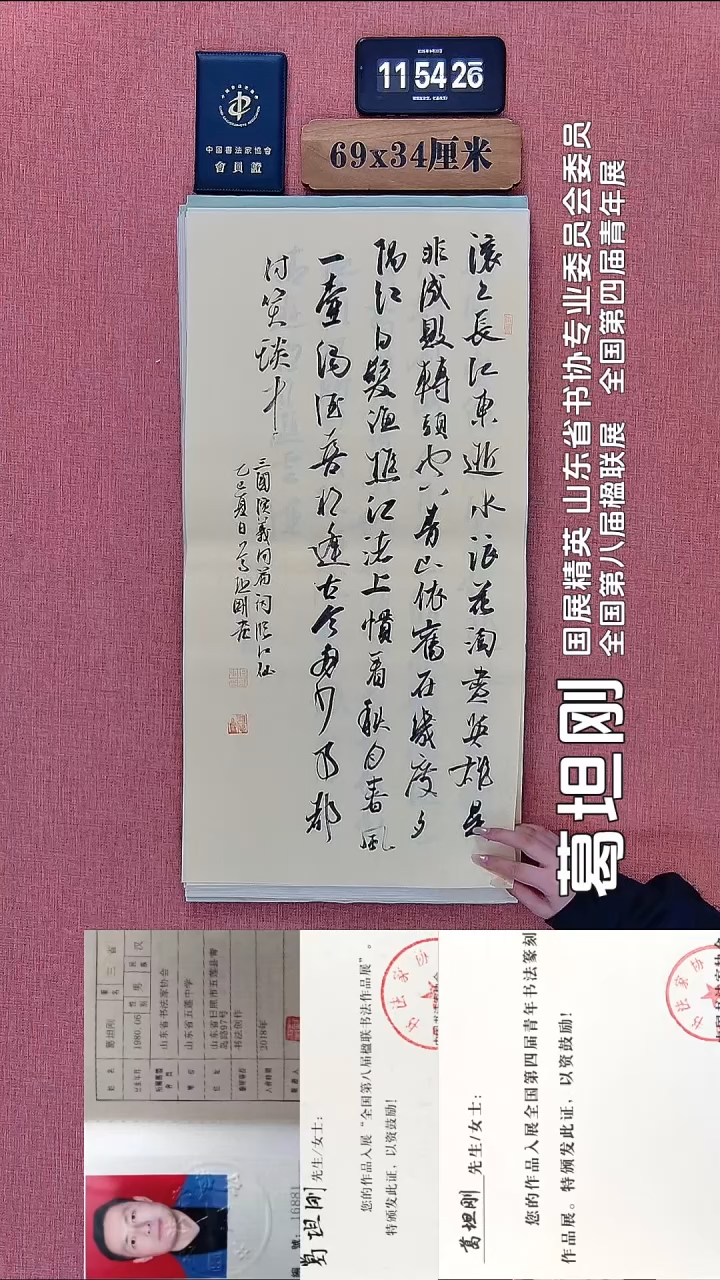 中國書法家協會
會員證
11 54 26
69x34厘米
滚々長江東逝水浪花淘盡英雄是
非成敗轉頭空青山依舊在幾度夕
陽紅白髮漁樵江渚上慣看秋月春風
一壺濁酒喜相逢古今多少事都
付笑談中
三國演義開篇詞臨江仙
乙巳夏日葛坦剛書
国展精英 山东省书协专业委员会委员
全国第八届楹联展 全国第四届青年展
葛坦刚
姓名 葛坦刚
出生年月 1980.06 性别 男 民族 汉
山东省书法家协会
山东省五莲中学
山东省日照市五莲县青
岛路97号
书法创作
2018年
编 號:16881
葛坦刚 先生/女士:
您的作品入展“全国第八届楹联书法作品展”。
特颁发此证,以资鼓励!
葛坦刚 先生/女士:
您的作品入展全国第四届青年书法篆刻
作品展。特颁发此证,以资鼓励!